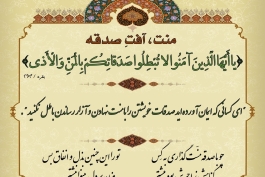 منت، آفت صدقه
﴿یا أیها الذین آمنوا لا تبطلوا صدقاتکم بالمن والأذی﴾
بقره / ۲۶۴
ای کسانی که ایمان آورده‌اید صدقات خویشتن را با منت نهادن و آزار رساندن باطل نکنید.
تو را این چنین بذل و انفاق بس